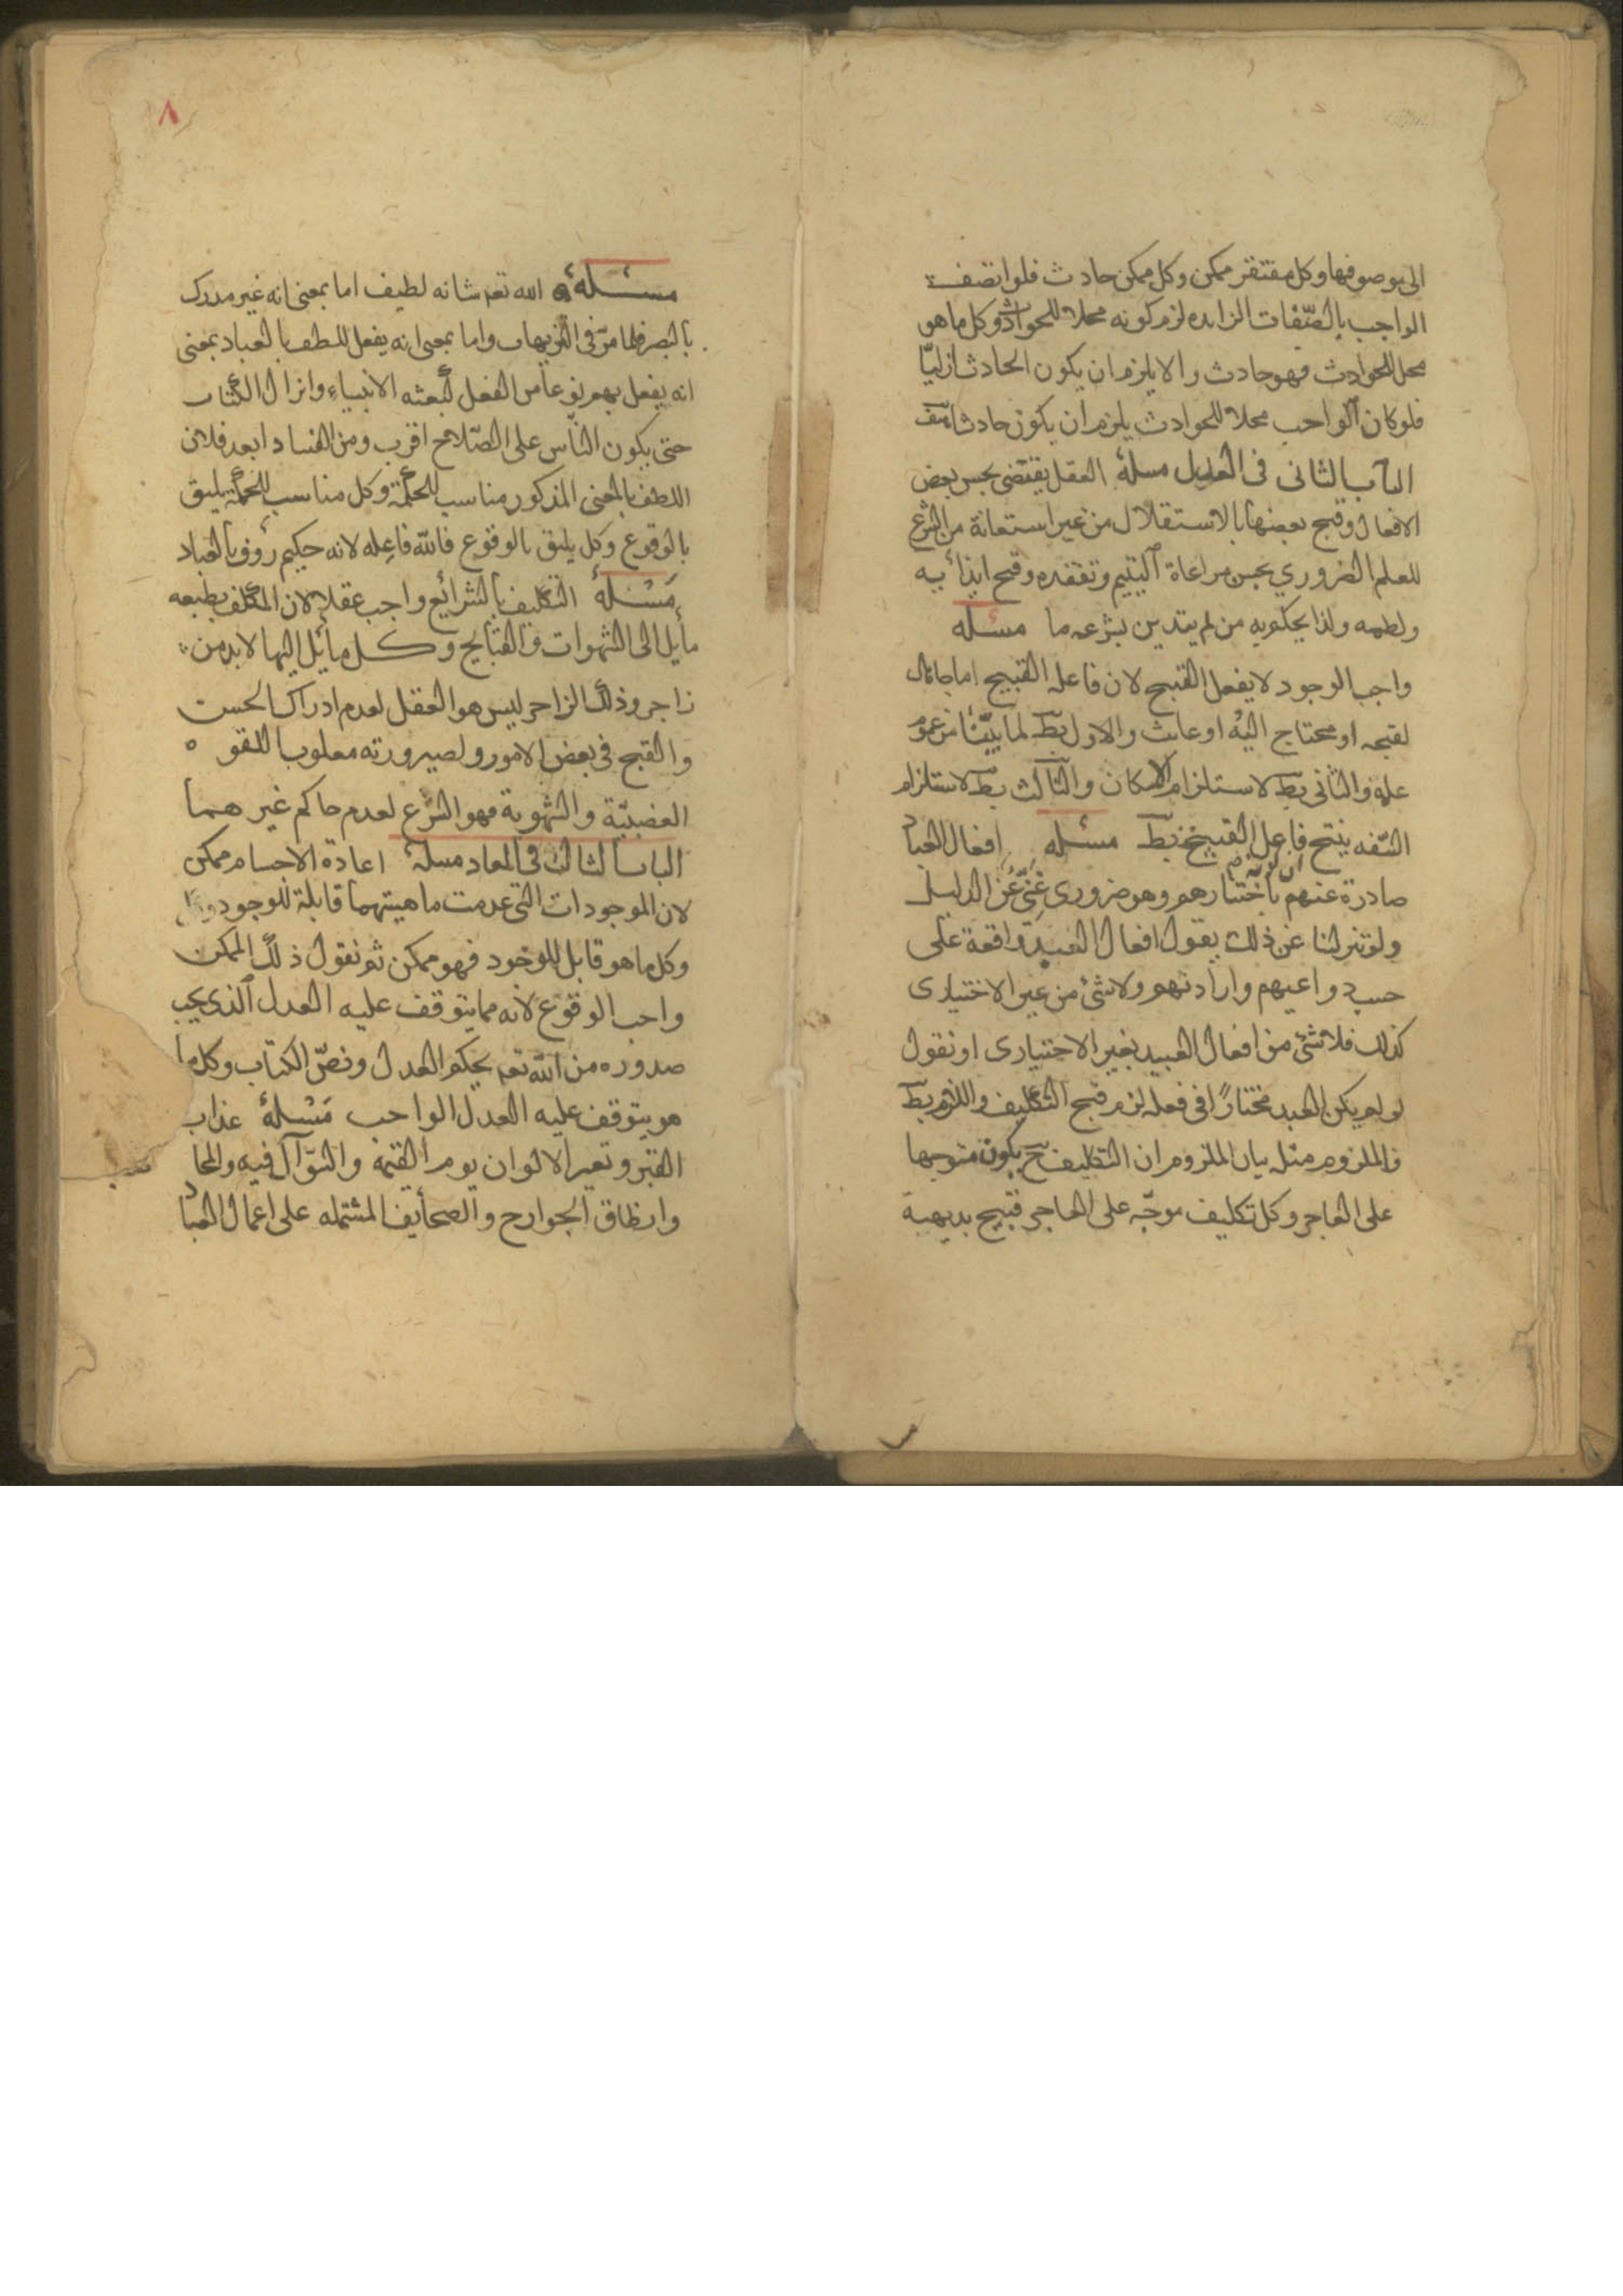 الى موصوفها وكل مفتقر ممكن وكل ممكن حادث فلو اتصف
الواجب بالصّفات الزايده لزم كونه محلا للحوادث وكل ما هو
محل للحوادث فهو حادث والا يلزم ان يكون الحادث ازليّا
فلو كان الواجب محلا للحوادث يلزم ان يكون حادثا هف
الباب الثانى فى العدل مسلة العقل يقتضى بحسن بعض
الافعال وقبح بعضها بالاستقلال من غير استعانة من الشرع
للعلم الضروري بحسن مراعاة اليتيم وتفقده وقبح ايذائه
ولطمه ولذا يحكم به من لم يتدين بشرعه ما مسئله
واجب الوجود لا يفعل القبيح لان فاعل القبيح اما جاهل
لقبحه او محتاج اليه او عابث والاول بط لما بيّنّا من عموم
علمه والثانى بط لاستلزام الامكان والثالث بط لاستلزام
السّفه ينتج فاعل القبيح بط مسئله افعال العباد
صادرة عنهم باختيارهم وهو ضرورى غنىّ عن الدليل
ولو تنزلنا عن ذلك بقول افعال العبيد واقعة على
حسب دواعيهم وارادتهم ولا شئ من غير الاختيارى
كذلك فلا شئ من افعال العبيد بغير الاختيارى او نقول
لو لم يكن العبد مختارًا فى فعله لزم قبح التكليف واللازم بط
فالملزوم مثله بيان الملزوم ان التكليف ح يكون متوجها
على العاجز وكل تكليف موجّه على العاجز قبيح بديهية
٨
مسئلة الله تعم شانه لطيف اما بمعنى انه غير مدرك
بالبصر فلما مرّ فى التنزيهات واما بمعنى انه يفعل للطف بالعباد بمعنى
انه يفعل بهم نوعا من الفعل كبعثه الانبياء وانزال الكتاب
حتى يكون الناس على الصّلاح اقرب ومن الفساد ابعد فلان
اللطف بالمعنى المذكور مناسب للحكمة وكل مناسب للحكمة يليق
بالوقوع وكل يليق بالوقوع فالله فاعله لانه حكيم رؤف بالعباد
مسئلة التكليف بالشرائع واجب عقلا لان المكلف بطبعه
مايل الى الشهوات والقبايح وكل مايل اليها لابد من
زاجر وذلك الزاجر ليس هو العقل لعدم ادراك الحسن
والقبح فى بعض الامور ولصيرورته مغلوب اللقوه
الغضبيّة والشهوية فهو الشّرع لعدم حاكم غير هما
الباب الثالث فى المعاد مسلة اعادة الاجسام ممكن
لان الموجودات التى عدمت ماهيتهما قابلة للوجود
وكل ما هو قابل للوجود فهو ممكن ثم نقول ذلك الممكن
واجب الوقوع لانه مما يتوقف عليه العدل الذى يجب
صدوره من الله تعم بحكم العدل ونصّ الكتاب وكل ما
هو يتوقف عليه العدل الواجب مسئلة عذاب
القبر وتغير الالوان يوم القيمة والسّؤال فيه
وانطاق الجوارح والصحايف المشتمله على اعمال العباد